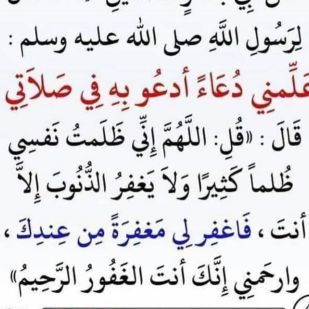 لِرَسُولِ اللَّهِ صلى الله عليه وسلم :
عَلِّمنِي دُعَاءً أدعُو بِهِ فِي صَلاَتِي
قَالَ : «قُلِ: اللَّهُمَّ إِنِّي ظَلَمتُ نَفسِي
ظُلماً كَثِيرًا وَلاَ يَغفِرُ الذُّنُوبَ إِلاَّ
أنتَ ، فَاغفِر لِي مَغفِرَةً مِن عِندِكَ ،
وارحَمنِي إِنَّكَ أنتَ الغَفُورُ الرَّحِيمُ»